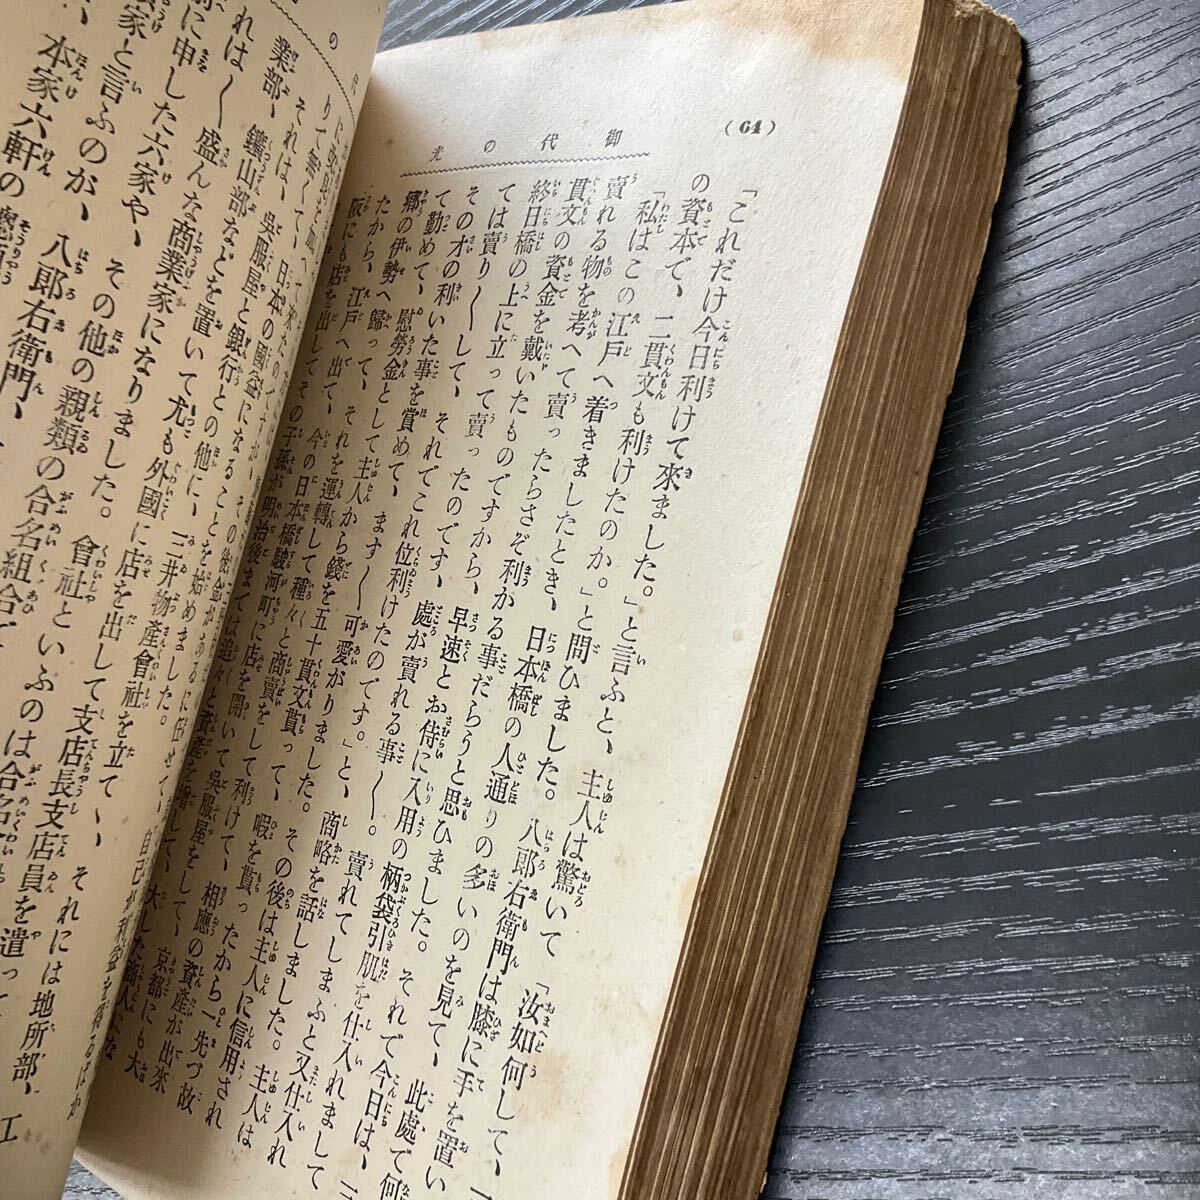 (64)
御代の光
「これだけ今日利けて來ました。」と言ふと、主人は驚いて「汝如何して、一
の資本で、二貫文も利けたのか。」と問ひました。八郎右衛門は膝に手を置い
「私はこの江戸へ着きましたとき、日本橋の人通りの多いのを見て、此處で何
賣れる物を考へて賣ったらさぞ利かる事だらうと思ひました。それで今日は、二
貫文の資金を戴いたものですから、早速とお侍に入用の柄袋引肌を仕入れまして
終日橋の上に立って賣ったのです、處が賣れる事〱。賣れてしまふと又仕入れ
ては賣り〱して、それでこれ位利けたのです。」と、商略を話しました。主人は
その才の利いた事を賞めて、ます〱可愛がりました。その後は主人に信用され
て勤めて、慰勞金として主人から錢を五十貫文貰って、暇を貰ったから一先づ故
郷の伊勢へ歸って、それを運轉して種々と商賣をして利けて、相應の資産が出來
たから、江戸へ出て、今の日本橋駿河町に店を開いて呉服屋をして、京都にも大
阪にも店を出してその子孫が明治後までは追々と資産を増して、大した商人にな
りて無くて、日本の國益になることを始めました。
それは、呉服屋と銀行との他に、三井物産會社を立て、
業部、鑛山部などを置いて尤も外國に店を出して支店長支店員を遣って
れは〱盛んな商業家になりました。會社といふのは合名
に申した六家や、その他の親類の合名組合
家と言ふのが、八郎右衛門、
本家六軒の
それには地所部、工